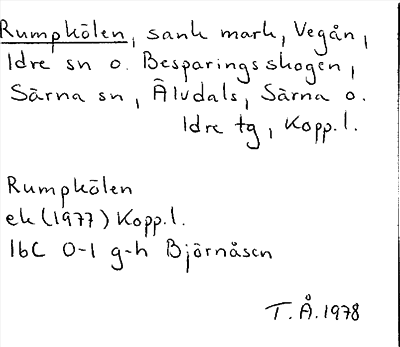 Rumpkölen, sank mark, Vegån,
Idre sn o. Besparingsskogen,
Särna sn, Älvdals, Särna o.
Idre tg, Kopp.l.
Rumpkölen
ek (1977) Kopp.l.
16C 0-1 g-h Björnåsen
T.Å.1978